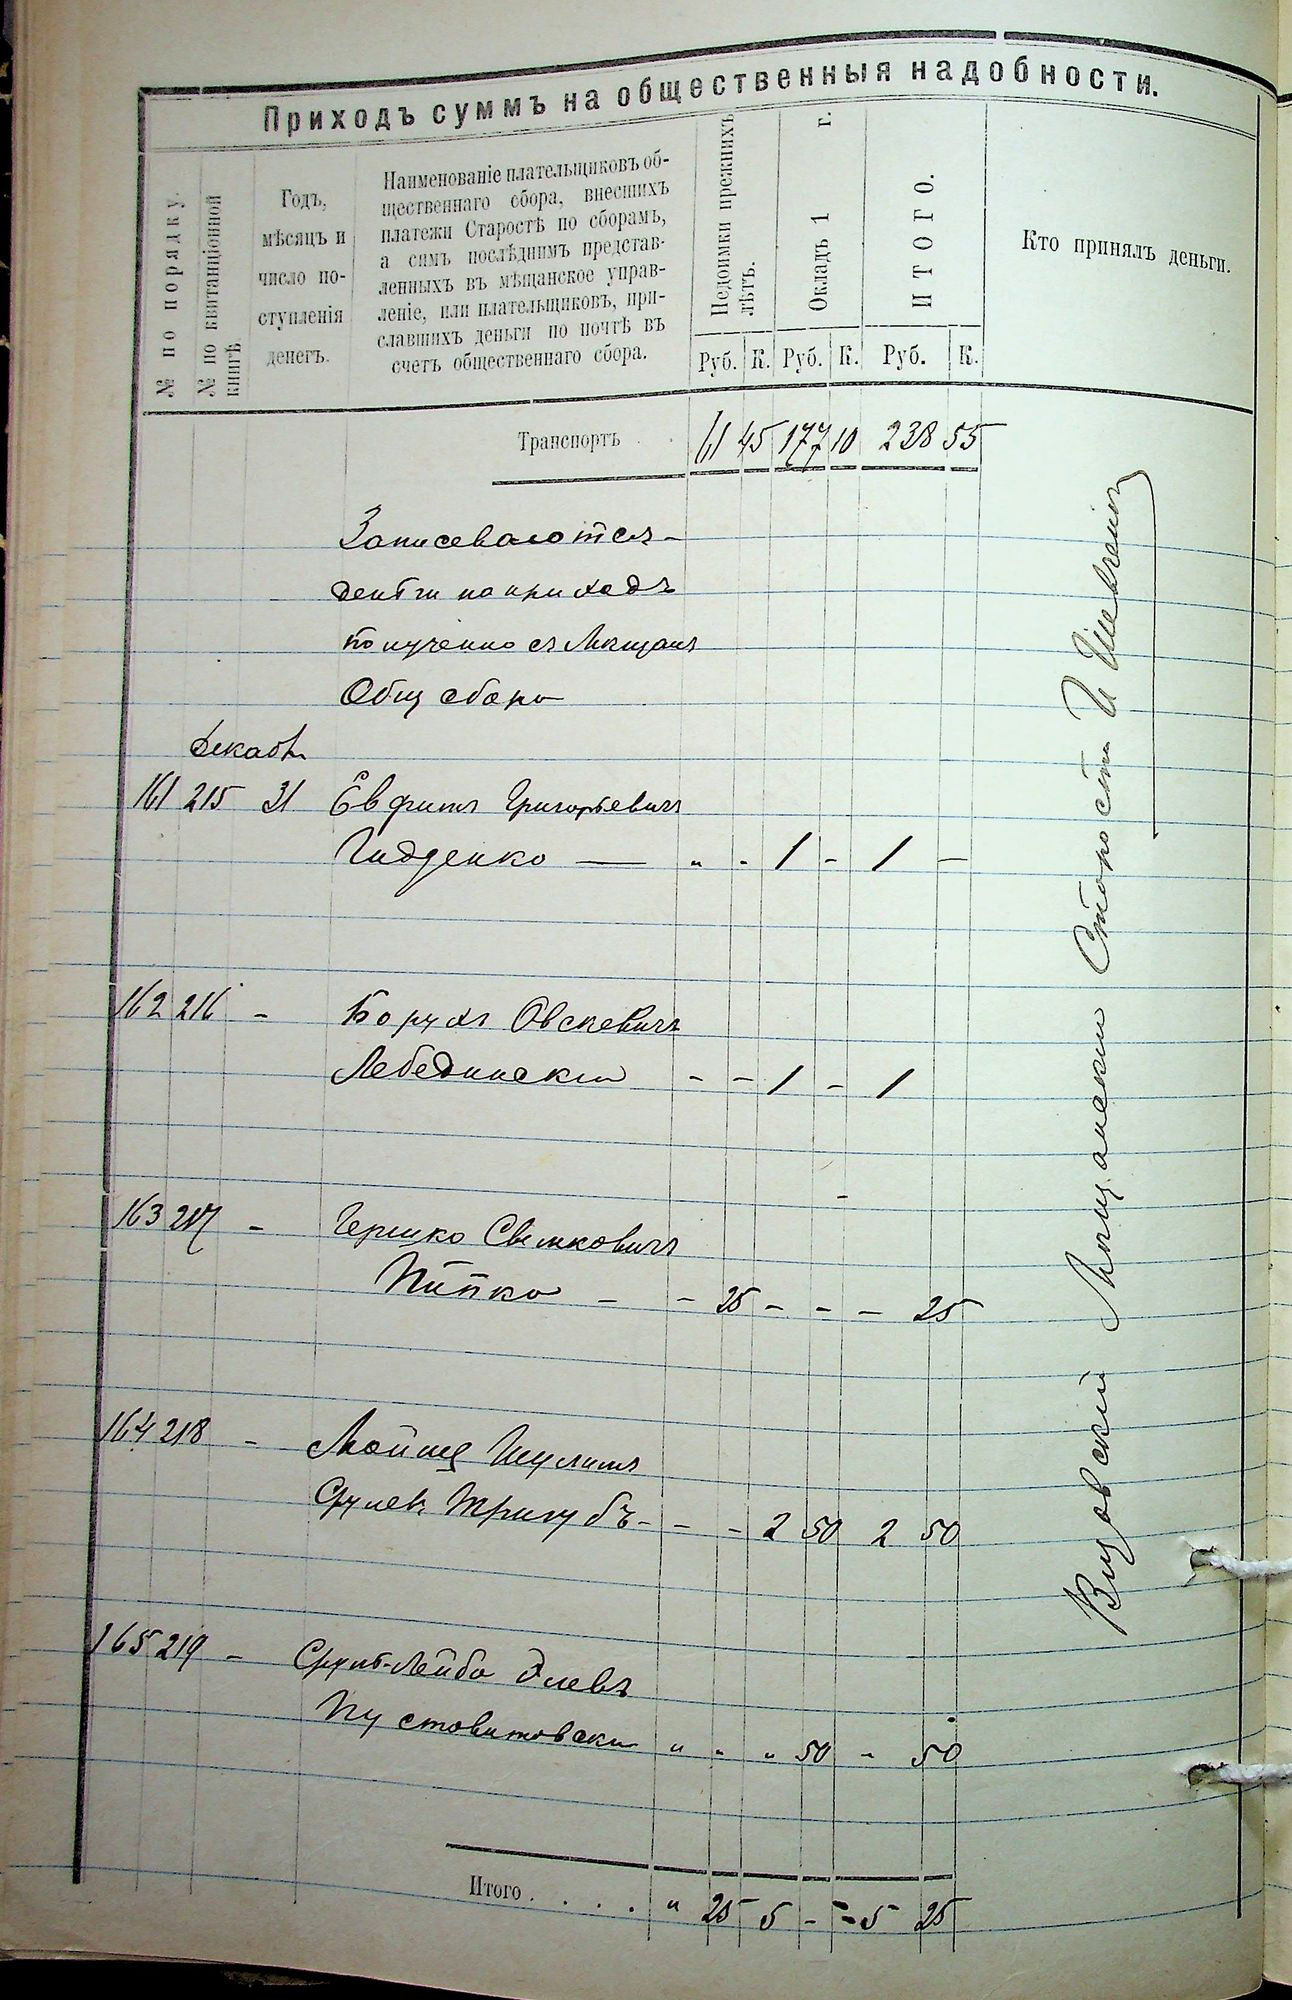 Приходъ суммъ на общественныя надобности.
№ по порядку.
№ по квитанціонной книгѣ
Годъ,
мѣсяцъ и
число по-
ступленія
денегъ.
Наименованіе плательщиковъ об-
щественнаго сбора, внесшихъ
платежи Старостѣ по сборамъ,
а симъ послѣднимъ представ-
ленныхъ въ мѣщанское управ-
леніе, или плательщиковъ, при-
славшихъ деньги по почтѣ въ
счетъ общественнаго сбора.
Недоимки прежнихъ лѣтъ.
Окладъ 1 г.
ИТОГО.
Кто принялъ деньги.
Руб. К. Руб. К. Руб. К.
Транспортъ . . 61 45 177 10 238 55
Записеваются
денги на приходъ
полученно съ Мѣщанъ
Общ сбора
Декабр
161 215 31 Евфимъ Григорьевичъ
— „ - 1 - 1 —
162 216 - Борухъ Овсеевичъ
Лебединскій - - 1 - 1
163 217 - Гершко
- - 25 - - - 25
164 218 - Мойше Шулимъ
Срулев Тригубъ - - - 2 50 2 50
165 219 - Сруль-Лейба
Пустовитовски „ „ „ 50 - 50
Итого . . . . „ 25 5 - - 5 25
Мѣщански Староста И Шевченко